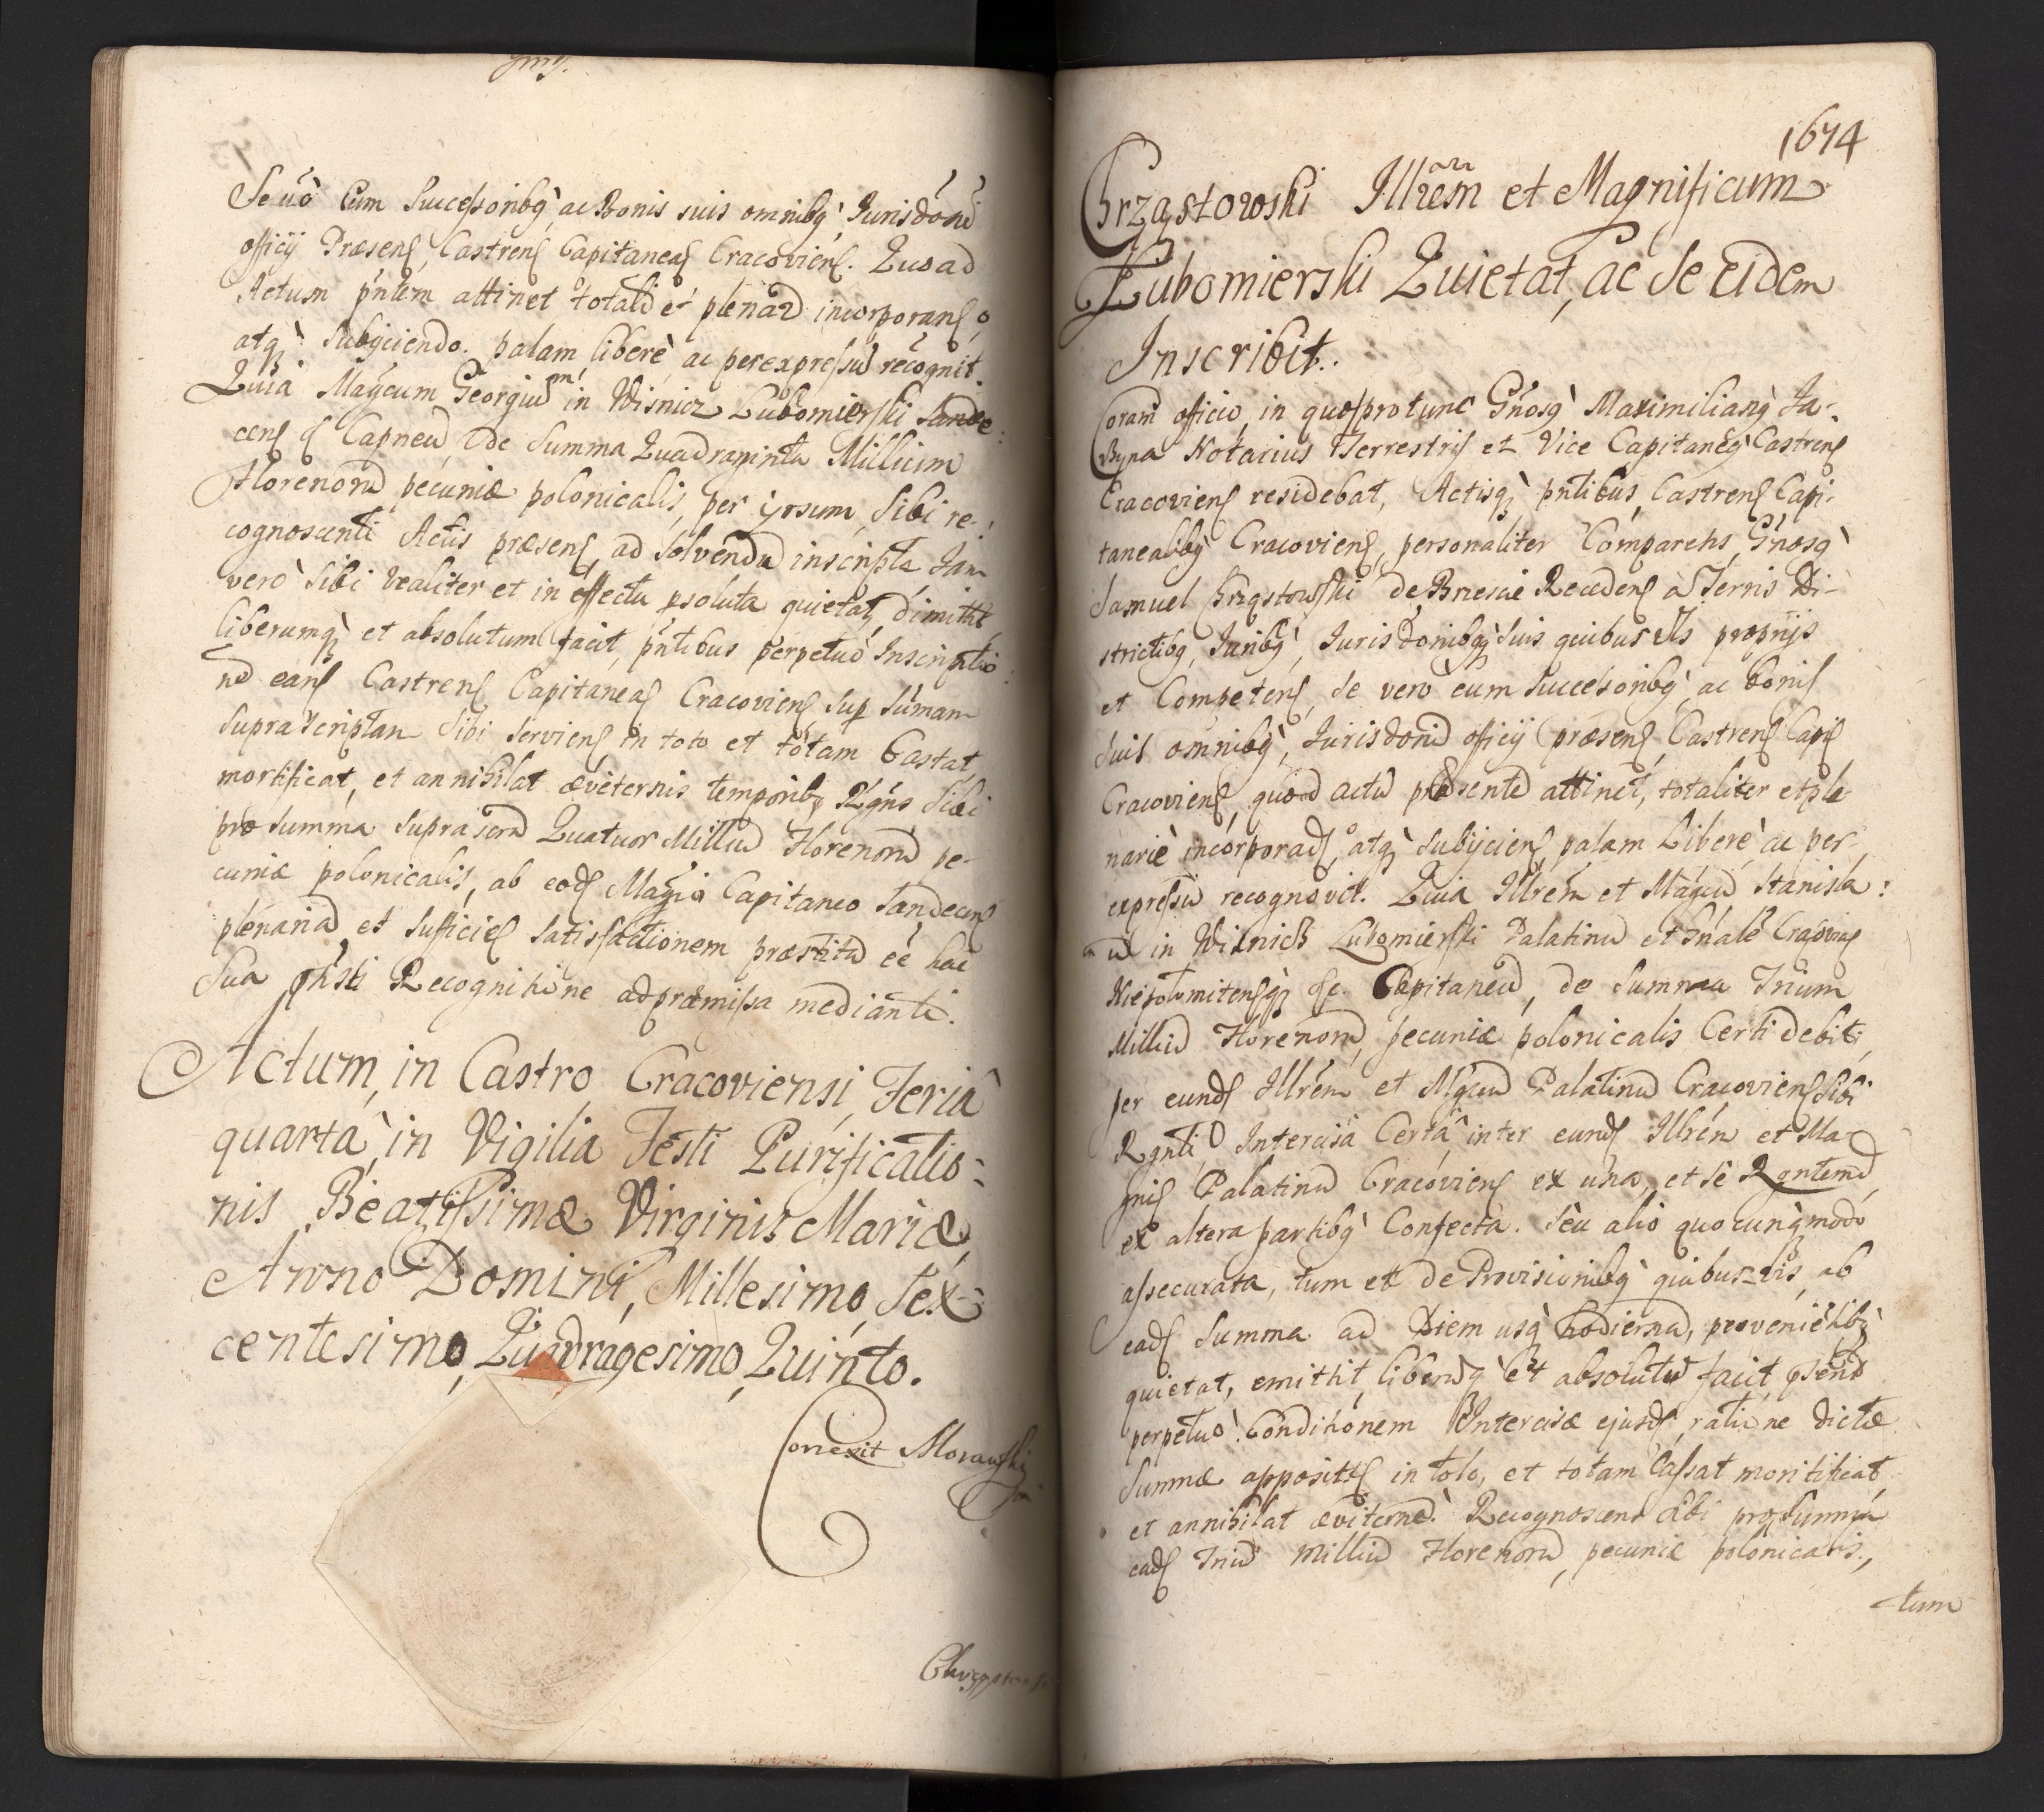 Se uò Cum Successoribq ac Bonis suis omnibq, Jurisdōni
officij Præsenſ, Castrenſ Capitaneaſ Cracovienſ. Quoad
Actum pńtem attinet totalit et plenarie incorporanſ
atq subijciendo. palam liberè ac per expressū recognit.
Quia Magcum Georgium in Wisnicz Lubomierski Sande-
cenſ Capneū, de Summa Quadraginta Millium
Florenorū pecuniæ polonicalis, per ipsum Sibi re-
cognoscenti Actis præsenſ, ad Solvendū inscripta Jam
verò Sibi realiter et in effectu psoluta quietat, dimittit,
liberumq et absolutum facit, pńtibus perpetuò Inscriptio-
nē eanſ Castrenſ Capitaneaſ Cracovienſ, Sup Sumam
Suprascriptam Sibi Servienſ in toto et totam Cassat,
mortificat, et annihilat æviternis temporibq, Rgńs Sibi
pro Summa Suprascrā Quatuor Milliū Florenorū pe-
cuniæ polonicalis, ab eodſ Magco Capitaneo Sandecenſ
plenariā et Sufficien Satisfactionem præstitā eē hac
Sua Recognitione ad præmissa mediante.
Actum, in Castro Cracoviensi, Feriâ
quarta, in Vigilia Festi Purificatio=
nis Beatissimæ Virginis Mariæ,
Anno Domini, Millesimo, Sex-
centesimo, Quadragesimo, Quinto.
Correxit Morawski
1674
Chrząstowski Illrēm et Magnificum
Lubomierski Quietat, ac Se Eidem
Inscribit.
Coram officio, in quo protunc Gńosq Maximilianq Ja-
Bryna Notarius Terrestris et Vice Capitaneq Castrenſ
Cracovienſ residebat, Actisq pńtibus, Castrenſ Capi-
taneabibq Cracovienſ, personaliter Comparens, Gńosq
Samuel Chrząstowski de Brzescie Recedenſ à Terris Di-
strictibq, Juribq, Jurisdōnibqq Suis quibus vis proprijs
et Competenſ, Se verò cum Successoribq ac bonis
Suis omnibq, Jurisdōni officij præsenſ Castrenſ Capſ
Cracovienſ, quoad actū præsentē attinet, totaliter et ple-
nariè incorporadſ, atq Subijcienſ, palam Liberè ac per-
expressū recognovit. Quia Illrem et Magcū Stanisla:
um in Wisnicz Lubomierski Palatinū et Gńale Cracovienſ
Niepolomitensqq &c. Capitaneū, de Summa Trium
Milliū Florenorū, pecuniæ polonicalis Certi debiti,
per eundſ Illrem et Mgcū Palatinū Cracovienſ Sibi
Rgnti Intercisa Certâ inter eundſ Illrem et Ma-
gniſ Palatinū Cracovienſ ex una, et Se Rgntemū
ex altera partibq Confecta. Seu alio quocunq modo
assecurata, tum et de Provisionibq quibus-vis, ab
eadſ Summa ad Diem usq hodiernā, provenientibq
quietat, emittit, liberūq et absolutū facit,
perpetuò. Conditionem Intercisæ ejusdſ, ratione dictæ
Summæ appositſ in toto, et totam Cassat mortificat,
et annihilat æviternè. Recognoscens Sibi pro Summa
eadſ Triū Milliū Florenorū, pecuniæ polonicalis,
tum